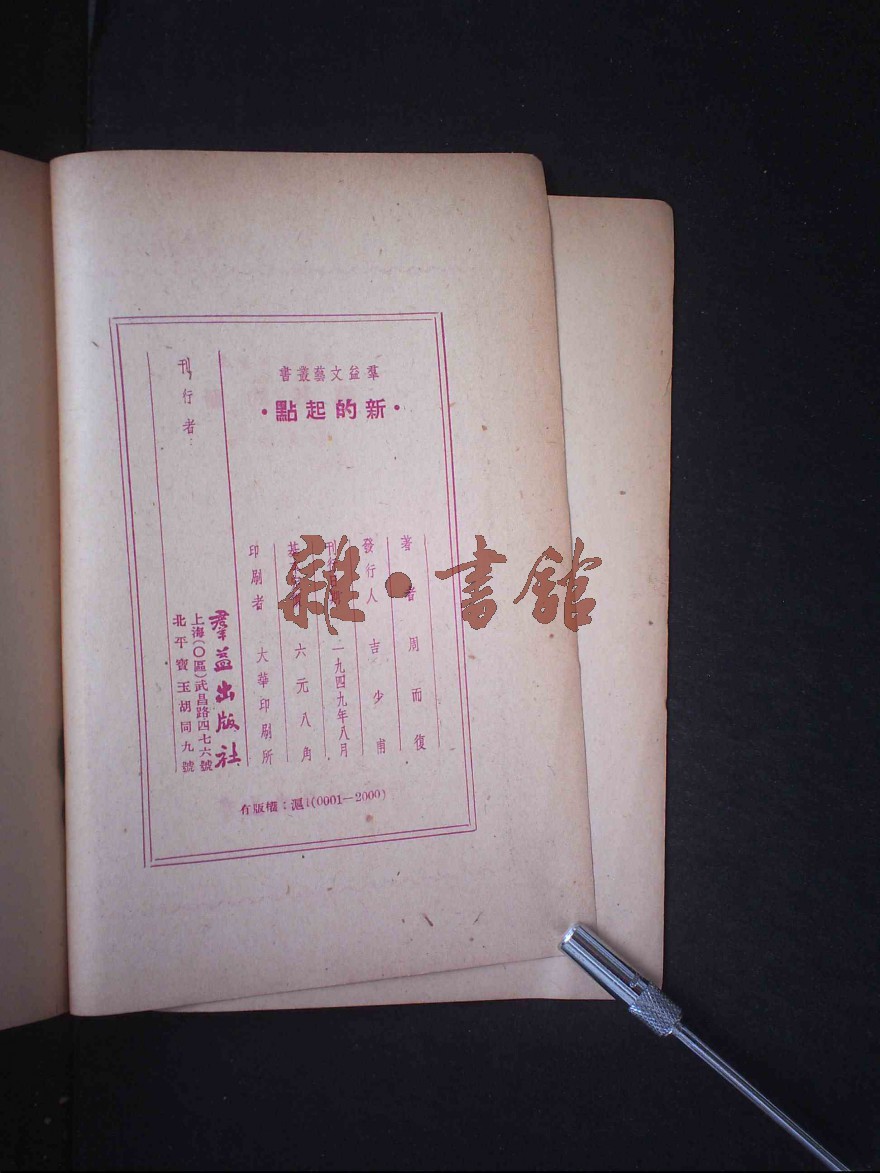 羣益文藝叢書
·新的起點·
著者 周而復
發行人 吉少甫
刊行日期 一九四九年八月
六元八角
印刷者 大華印刷所
刊行者：
羣益出版社
上海(〇區)武昌路四七六號
北平寶玉胡同九號
有版權：滬1(0001—2000)
雜·書館